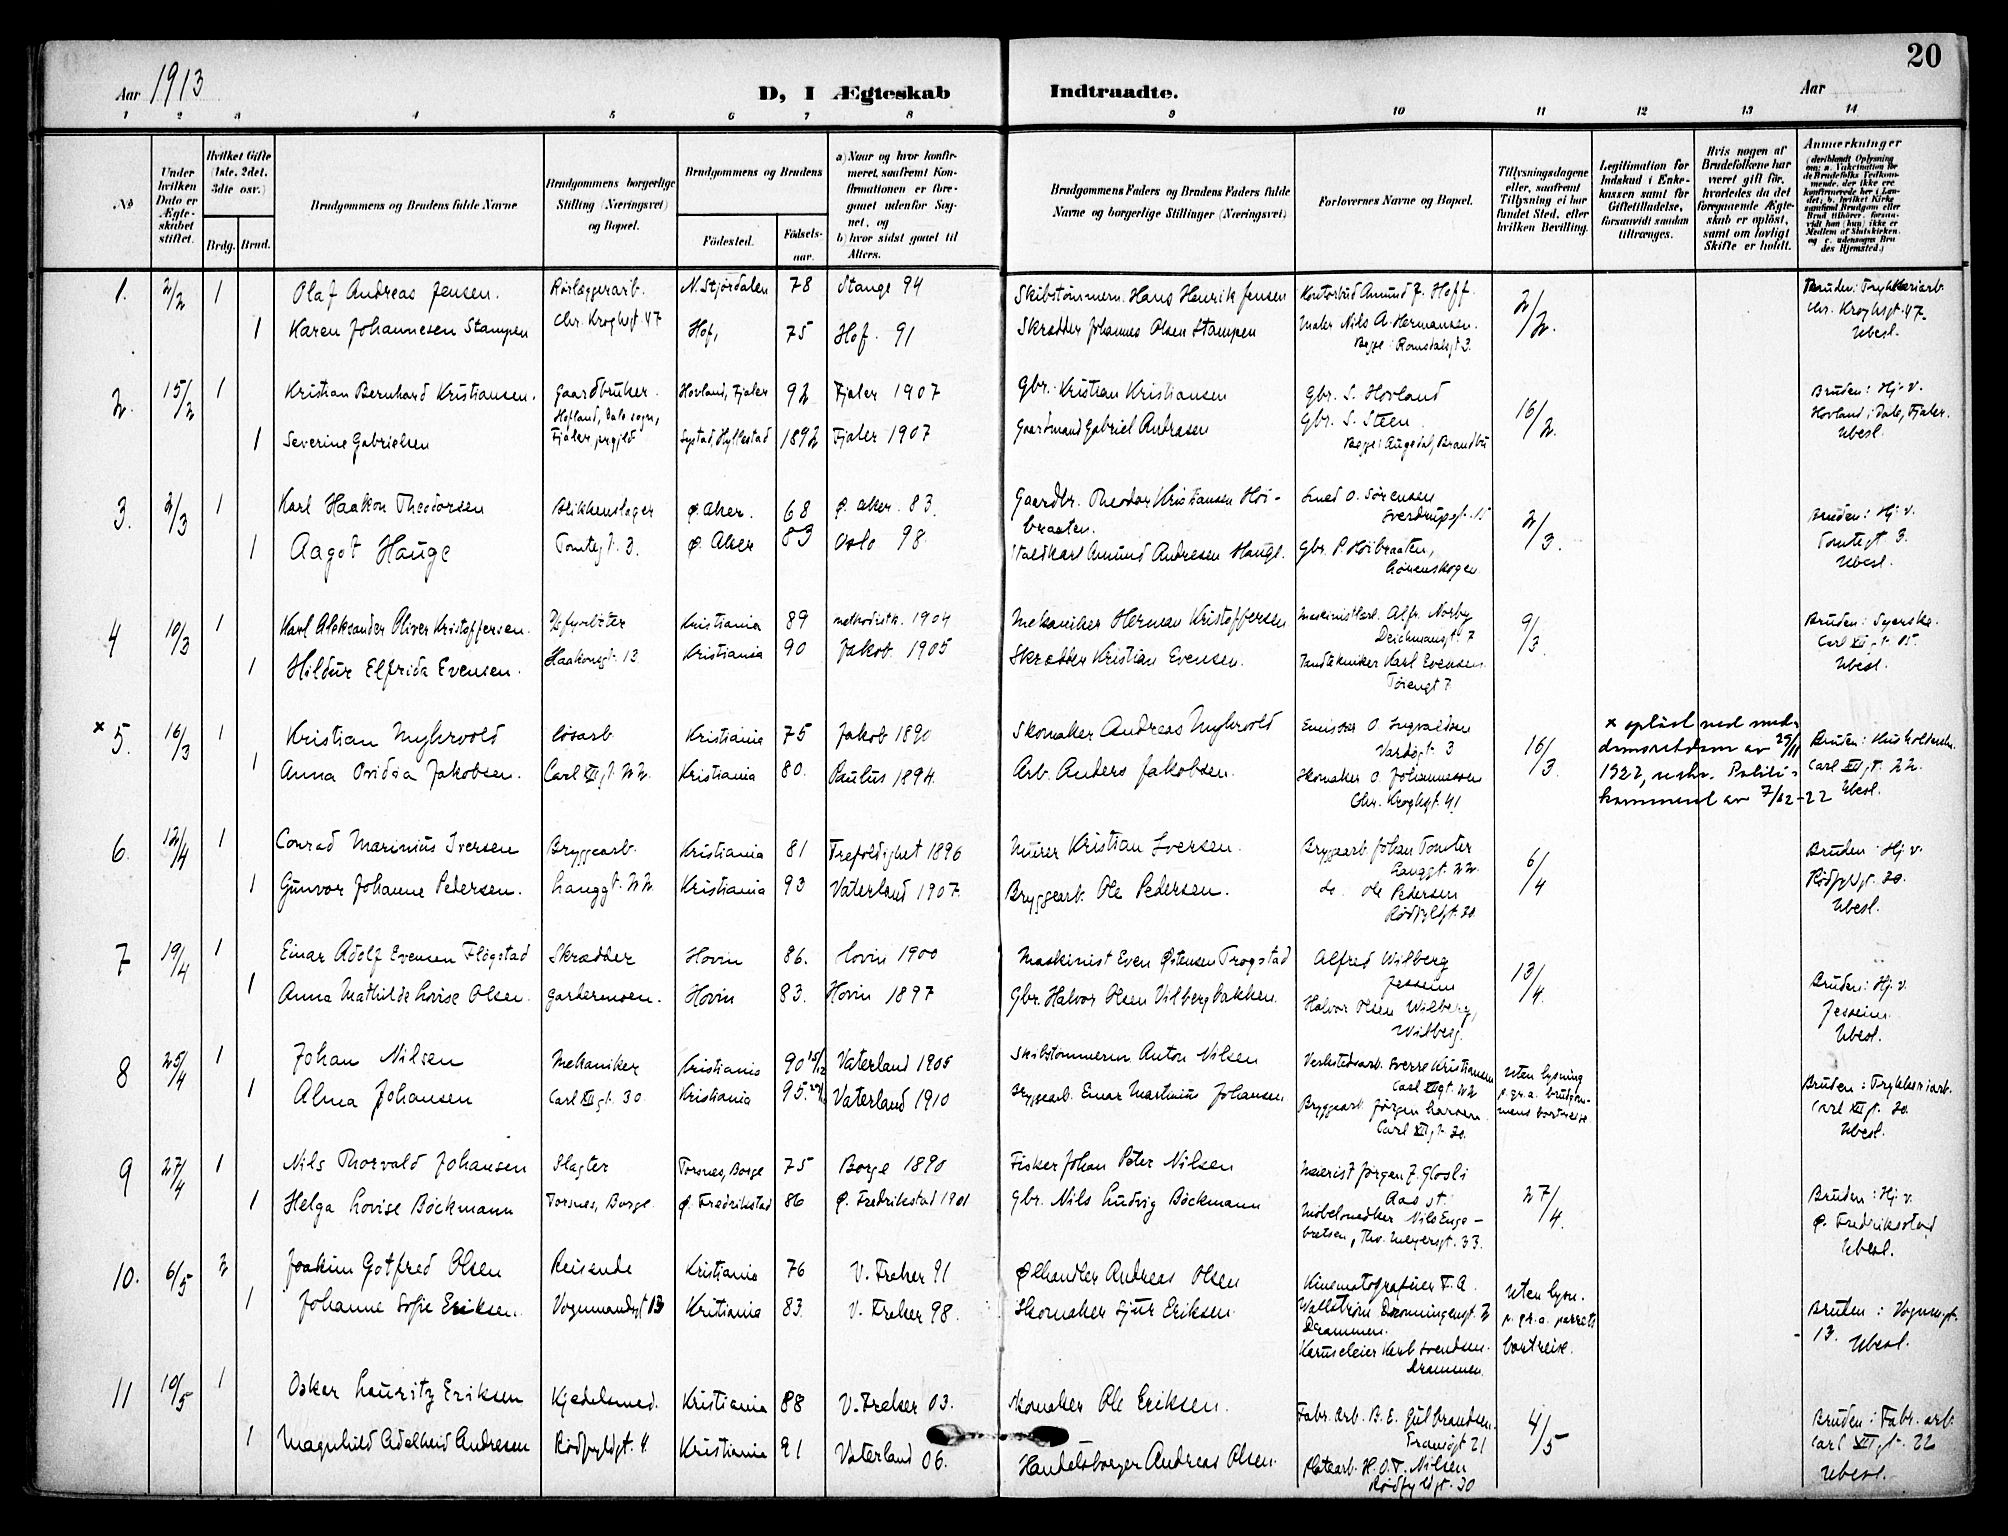 20
Aar 1913
D, I Ægteskab Indtraadte.
Aar
1 2 3 4 5 6 7 8 9 10 11 12 13 14
No
Under hvilken Dato er Ægteskabet stiftet.
Hvilket Gifte (1ste, 2det, 3die osv.)
Brdg. Brud.
Brudgommens og Brudens fulde Navne
Brudgommens borgerlige Stilling (Næringsvei) og Bopæl.
Brudgommens og Brudens
Fødested.
Fødselsaar.
a) Naar og hvor konfirmeret, saafremt Konfirmationen er foregaaet udenfor Sognet, og
b) hvor sidst gaaet til Alters.
Brudgommens Faders og Brudens Faders fulde Navne og borgerlige Stillinger (Næringsvei)
Forlovernes Navne og Bopæl.
Tillysningsdagene eller, saafremt Tillysning ei har fundet Sted, efter hvilken Bevilling.
Legitimation for Indskud i Enkekassen samt for Giftetilladelse, forsaavidt saadan tiltrænges.
Hvis nogen af Brudefolkene har været gift før, hvorledes da det foregaaende Ægteskab er opløst, samt om lovligt Skifte er holdt.
Anmærkninger
1. 2/2 1 Olaf Andreas Jensen. Rørlæggerarb. N. Stjørdalen 78 Stange 94 Skibstømmerm. Hans Henrik Jensen Kontorbud Amund J. Hoff. 2/2. Bruden: Trykkeriarb.
Chr. Kroghsgt 47 Chr. Kroghsgt. 47.
1 Karen Johannesen Stampen Hof, 75 Hof. 91 Skrædder Johannes Olsen Stampen Maler Nils A. Hermansen. Ubesl.
Begge: Romsdalsgt 3.
2. 15/2 1 Kristian Bernhard Kristiansen. Gaardbruker. Hovland, Fjaler 92 Fjaler 1907 Gbr. Kristian Kristiansen Gbr. S. Hovland 16/2. Bruden: Hj. v.
Hofland, Dale sogn, Gbr. S. Steen. Hovland, Dale, Fjaler.
1 Severine Gabrielsen Fjaler prgjld Systad, Hyllestad 1892 Fjaler 1907 Gaardmand Gabriel Andrasen Ubesl.
3. 2/3 1 Karl Haakon Theodorsen Blikkenslager Ø. Aker. 68 Ø. Aker. 83. Gaardbr. Theodor Kristiansen Høibraaten. Smed O. Sørensen 2/3. Bruden: Hj. v.
Sverdrupsgt. 15 Tomtegt 3.
1 Aagot Hauge Tomtegt. 3. Ø. Aker 83 Oslo 98. Staldkarl Amund Andresen Hauge. Gbr. P. Høibraaten, Ubesl.
4 10/3 1 Karl Aleksander Oliver Kristoffersen. Kristiania 89 metodistk. 1904 Mekaniker Herman Kristoffersen Alfr. Norby 9/3. Bruden: Syerske.
Deichmansgt. 7 Carl XII gt. 05.
1 Hildur Elfrida Evensen. Haakonsgt. 13 Kristiania 90 Jakob. 1905 Skrædder Kristian Evensen. Tandtekniker Karl Evensen Ubesl.
Tøiengt 7.
x 5. 16/3 1 Kristian Myhrvold løsarb Kristiania 75 Jakob 1890 Skomaker Andreas Myhrvold Emissær O. Ingvaldsen 16/3. Bruden: Husholdersk.
Vardøgt. 3 Carl XII gt. 22.
1 Anna Ovidia Jakobsen. Carl XII gt. 22. Kristiania 80. Paulus 1894. Arb. Anders Jakobsen. Skomaker O. Johannessen Ubesl.
Chr. Kroghsgt. 41
x opløst ved 29/11
1922, 7/12-22
6. 12/4 1 Conrad Marinius Iversen Bryggearb. Kristiania 81 Trefoldighet 1896 Murer Kristian Iversen. Bryggearb Johan Tomter 6/4 Bruden: Hj v.
Langgt 22. Rødfyldgt. 20.
1 Gunvor Johanne Pedersen. Langgt. 22. Kristiania 93 Vaterland 1907. Bryggearb. Ole Pedersen. do. Ole Pedersen Ubesl.
Rødfyldgt. 20.
7 19/4 1 Einar Adolf Evensen Fløgstad Skrædder Hovin 86. Hovin 1900 Maskinist Even Østensen Trogstad Alfred Wilberg 13/4. Bruden: Hj. v.
Jessein Jessein.
1 Anna Mathilde Lovise Olsen. Gardermoen. Hovin 83. Hovin 1897 Gbr. Halvor Olsen Vilbergbakken. Halvor Olsen Wilberg, Ubesl.
Wilberg.
8 25/4 1 Johan Nilsen Mekaniker Kristiania 90 15/12 Vaterland 1905 Skibstømmerm Anton Nilsen Verkstedsarb. Sverre Kristiansen Uten lysning Bruden: Trykkeriarb.
Carl XII gt. 22 p. gr. a. brudgom- Carl XII gt. 30.
1 Alma Johansen Carl XII gt. 30. Kristiania 95. Vaterland 1910 Bryggearb. Einar Martinius Johansen Bryggearb Jørgen Larsen mens bortreise Ubesl.
Carl XII gt. 30.
9 27/4 1 Nils Thorvald Johansen Slagter Torsnes, Borge 75 Borge 1890 Fisker Johan Peter Nilsen Meierist Jørgen J. Glosli 27/4. Bruden: Hj. v.
Aas st. Ø. Fredriksstad
1 Helga Lovise Böckmann Torsnes, Borge Ø. Fredrikstad 86 Ø. Fredrikstad 1901 Gbr. Nils Ludvig Böckmann Møbelsnedker Nils Enge- Ubesl.
bretsen, Thv. Meyersgt. 33.
10. 6/5 2 Joakim Gotfred Olsen Reisende Kristiania 76 V. Frelser 91 Ølhandler Andreas Olsen Kinematografeier F. A. Uten lysn. Bruden: Vognmgt.
Wallstrøm Dronningensgt. 2 p. gr. a. parrets 13. Ubesl.
1 Johanne Sofie Eriksen. Vognmandsgt 13 Kristiania 83. V. Frelser 98. Skomaker Sjur Eriksen. Drammen. bortreise.
Karuseleier Karl Svendsen. Drammen.
11 10/5 1 Oskar Lauritz Eriksen Kjedelsmed. Kristiania 88 V. Frelser 03. Skomaker Ole Eriksen. Fabr. Arb. B. E. Gulbrandsen. 4/5 Bruden: Fabr. arb.
21 Carl XII gt. 22
1 Magnhild Adelheid Andresen Rødfyldgt. 4. Kristiania 91 Vaterland 06. Handelsborger Andreas Olsen. Platearb. H. O. T. Nilsen Ubesl.
Rødfyldgt. 30